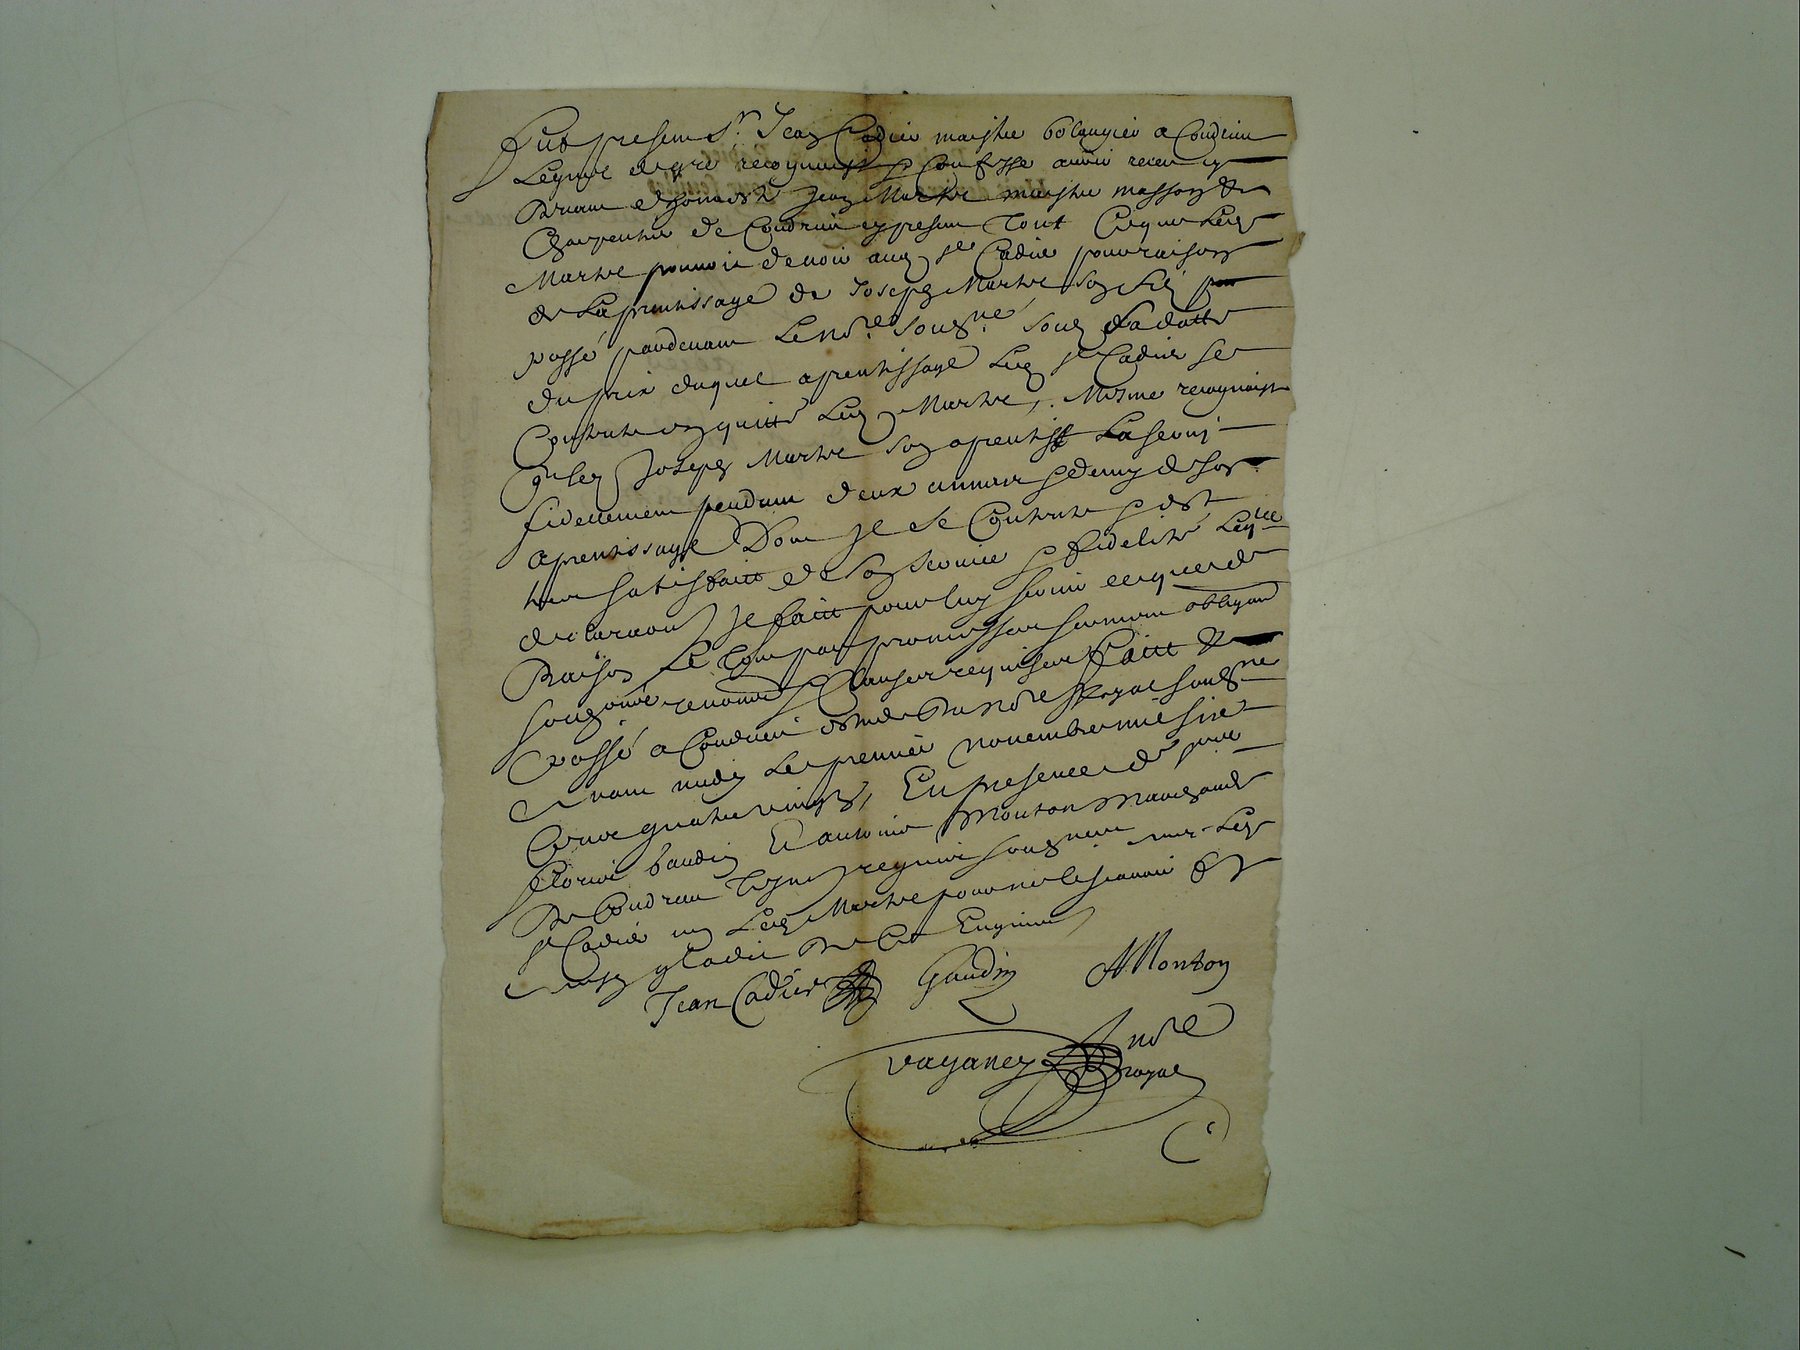 Fut present Sr. Jean Cadier maistre bolangier a Condrieu
Lequel de gré recognoist & confesse avoir receu cy
devant d'honneste Jean Martre maistre masson &
Charpentier de Condrieu cy present Tout ce que Led
Martre pouvoit devoir aud sr Cadier pour raison
de Laprentissage de Joseph Martre son filz
passé pardevant Le nore. sousne. souz sa datte
du prix duquel aprentissage Led sr Cadier se
Contente en quitte Led Martre, Mesme recognoist
que led Joseph Martre son aprentif La servi
fidellement pendant deux annees & demy de son
aprentissage Dont Il se Contente & est
satisfait de son service & fidelité Lequelle
declaration Il fait pour luy servir ce que de
Raison Le Tout par promesses serment obligaon
renonce & clauses requises fait &
passé a Condrieu estude du nore Royal sousne
avant midy Le premier novembre mil six
Cent quatre vingtz, En presence de
gaudin Et antoine Mouton Marchandz
De Condrieu Tesmoins requis sousnez avec Led
sr Cadier non Led Martre pour ne le scavoir
enquis
Jean Cadier Gaudin AMouton
vaganey nore
royal